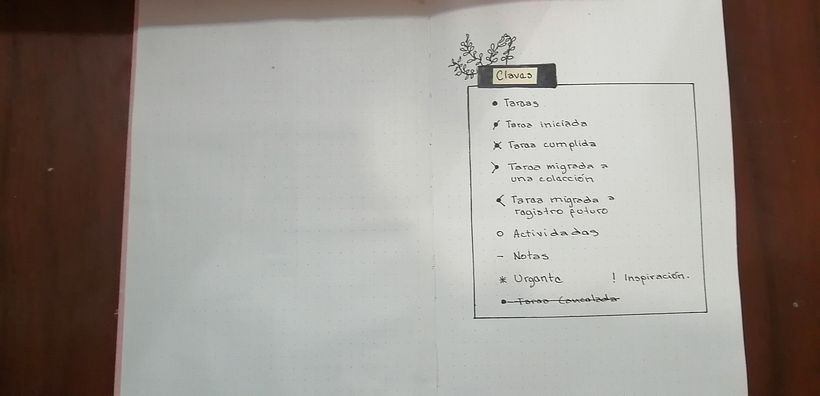 Claves
• Tareas
Tarea iniciada
× Tarea cumplida
> Tarea migrada a
una colección
< Tarea migrada a
registro futuro
o Actividades
- Notas
* Urgente ! Inspiración.
• Tarea Cancelada